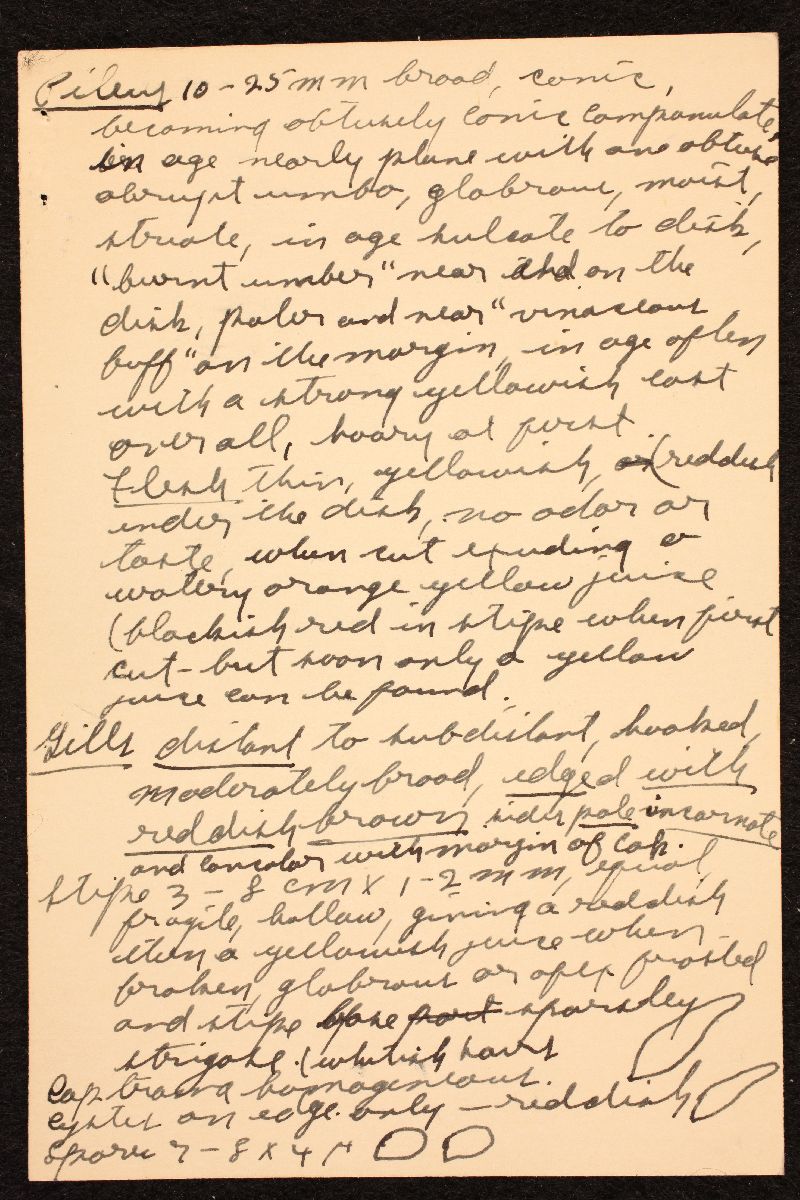 Pileus 10-25 mm broad, conic,
becoming obtusely conic campanulate,
in age nearly plane with an obtuse
abrupt umbo, glabrous, moist,
striate, in age sulcate to disk,
"burnt umber" near and on the
disk, paler and near "vinaceous
buff" on the margin, in age often
with a strong yellowish cast
over all, hoary at first
Flesh thin, yellowish, or (reddish
under the disk, no odor or
taste, when cut exuding a
watery orange yellow juice
(blackish red in stipe when first
cut - but soon only a yellow
juice can be found.
Gills distant to subdistant, hooked,
moderately broad, edged with
reddish brown, sides pale incarnate
and concolor with margin of cap.
Stipe 3-8 cm x 1-2 mm, equal,
fragile, hollow, giving a reddish
then a yellowish juice when
broken, glabrous or apex frosted
and stipe base part sparsley
strigose. (whitish hairs
Cap trama homogeneous.
cystid on edge only - reddish
Spores 7-8 x 4 µ